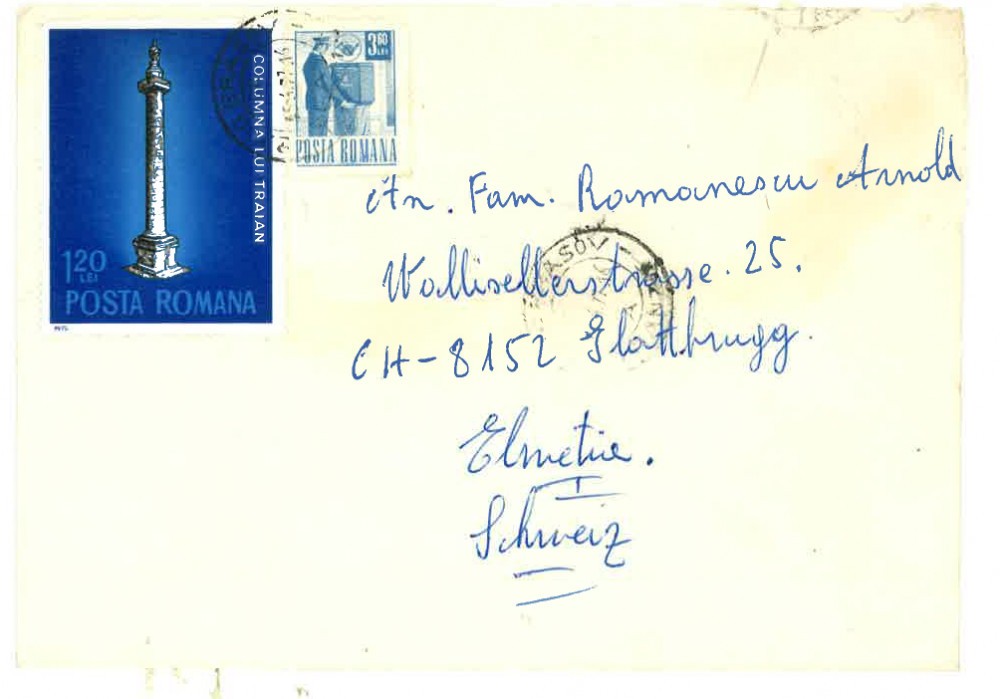 COLUMNA LUI TRAIAN
1.20
LEI
POSTA ROMANA
3,60
LEI
POSTA ROMANA
An. Fam. Romanescu Arnold
Wallisellerstrasse. 25.
CH-8152 Glattbrugg.
Elvetia.
Schweiz